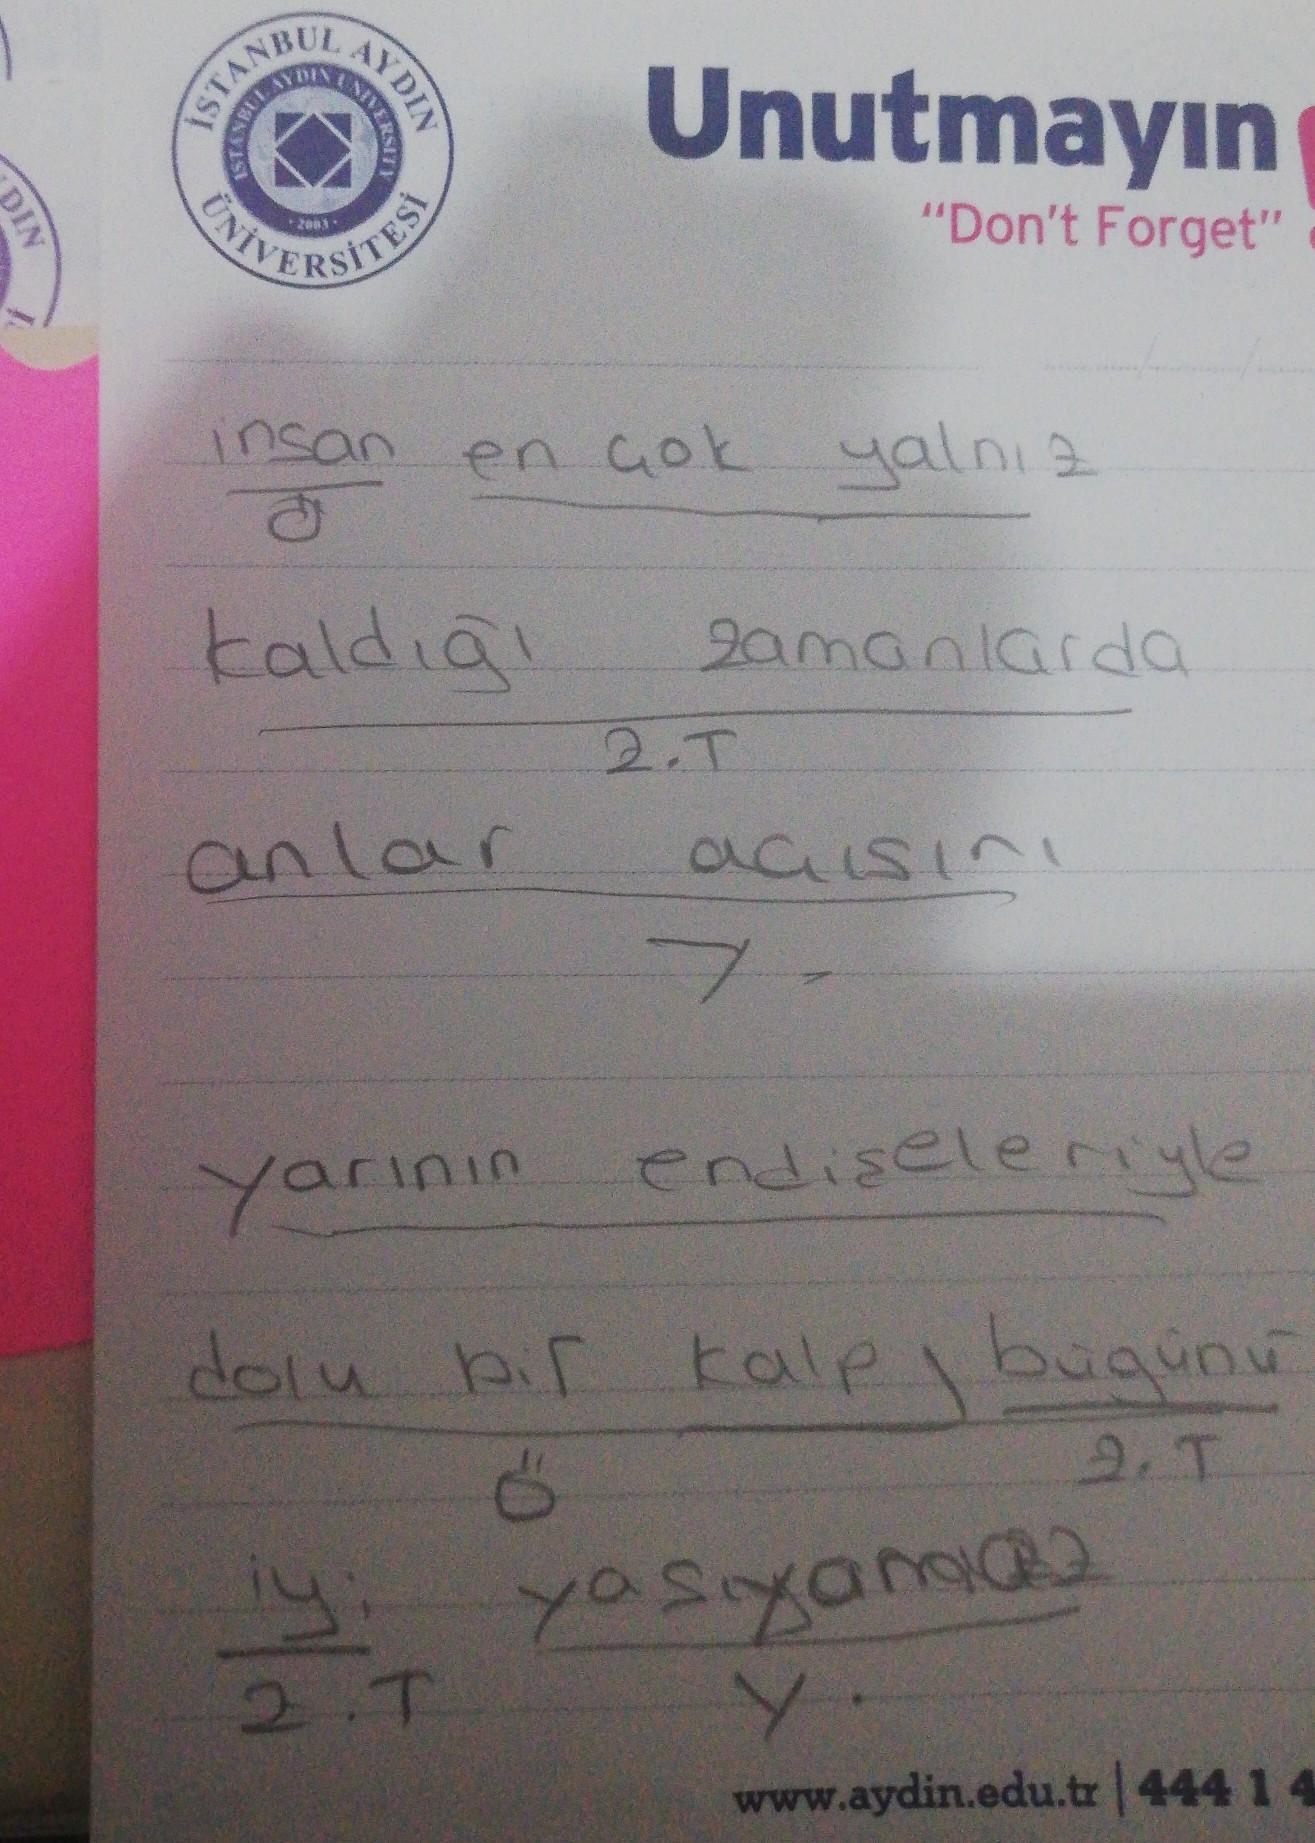 İSTANBUL AYDIN
ÜNİVERSİTESİ
İSTANBUL AYDIN UNIVERSITY
2003
Unutmayın!
"Don't Forget"
insan en çok yalnız
Ö
kaldığı zamanlarda
Z.T
anlar acısını
Y.
yarının endişeleriyle
dolu bir kalp, bugünü
Ö Z.T
iyi
Z.T Y.
www.aydin.edu.tr | 444 1 4